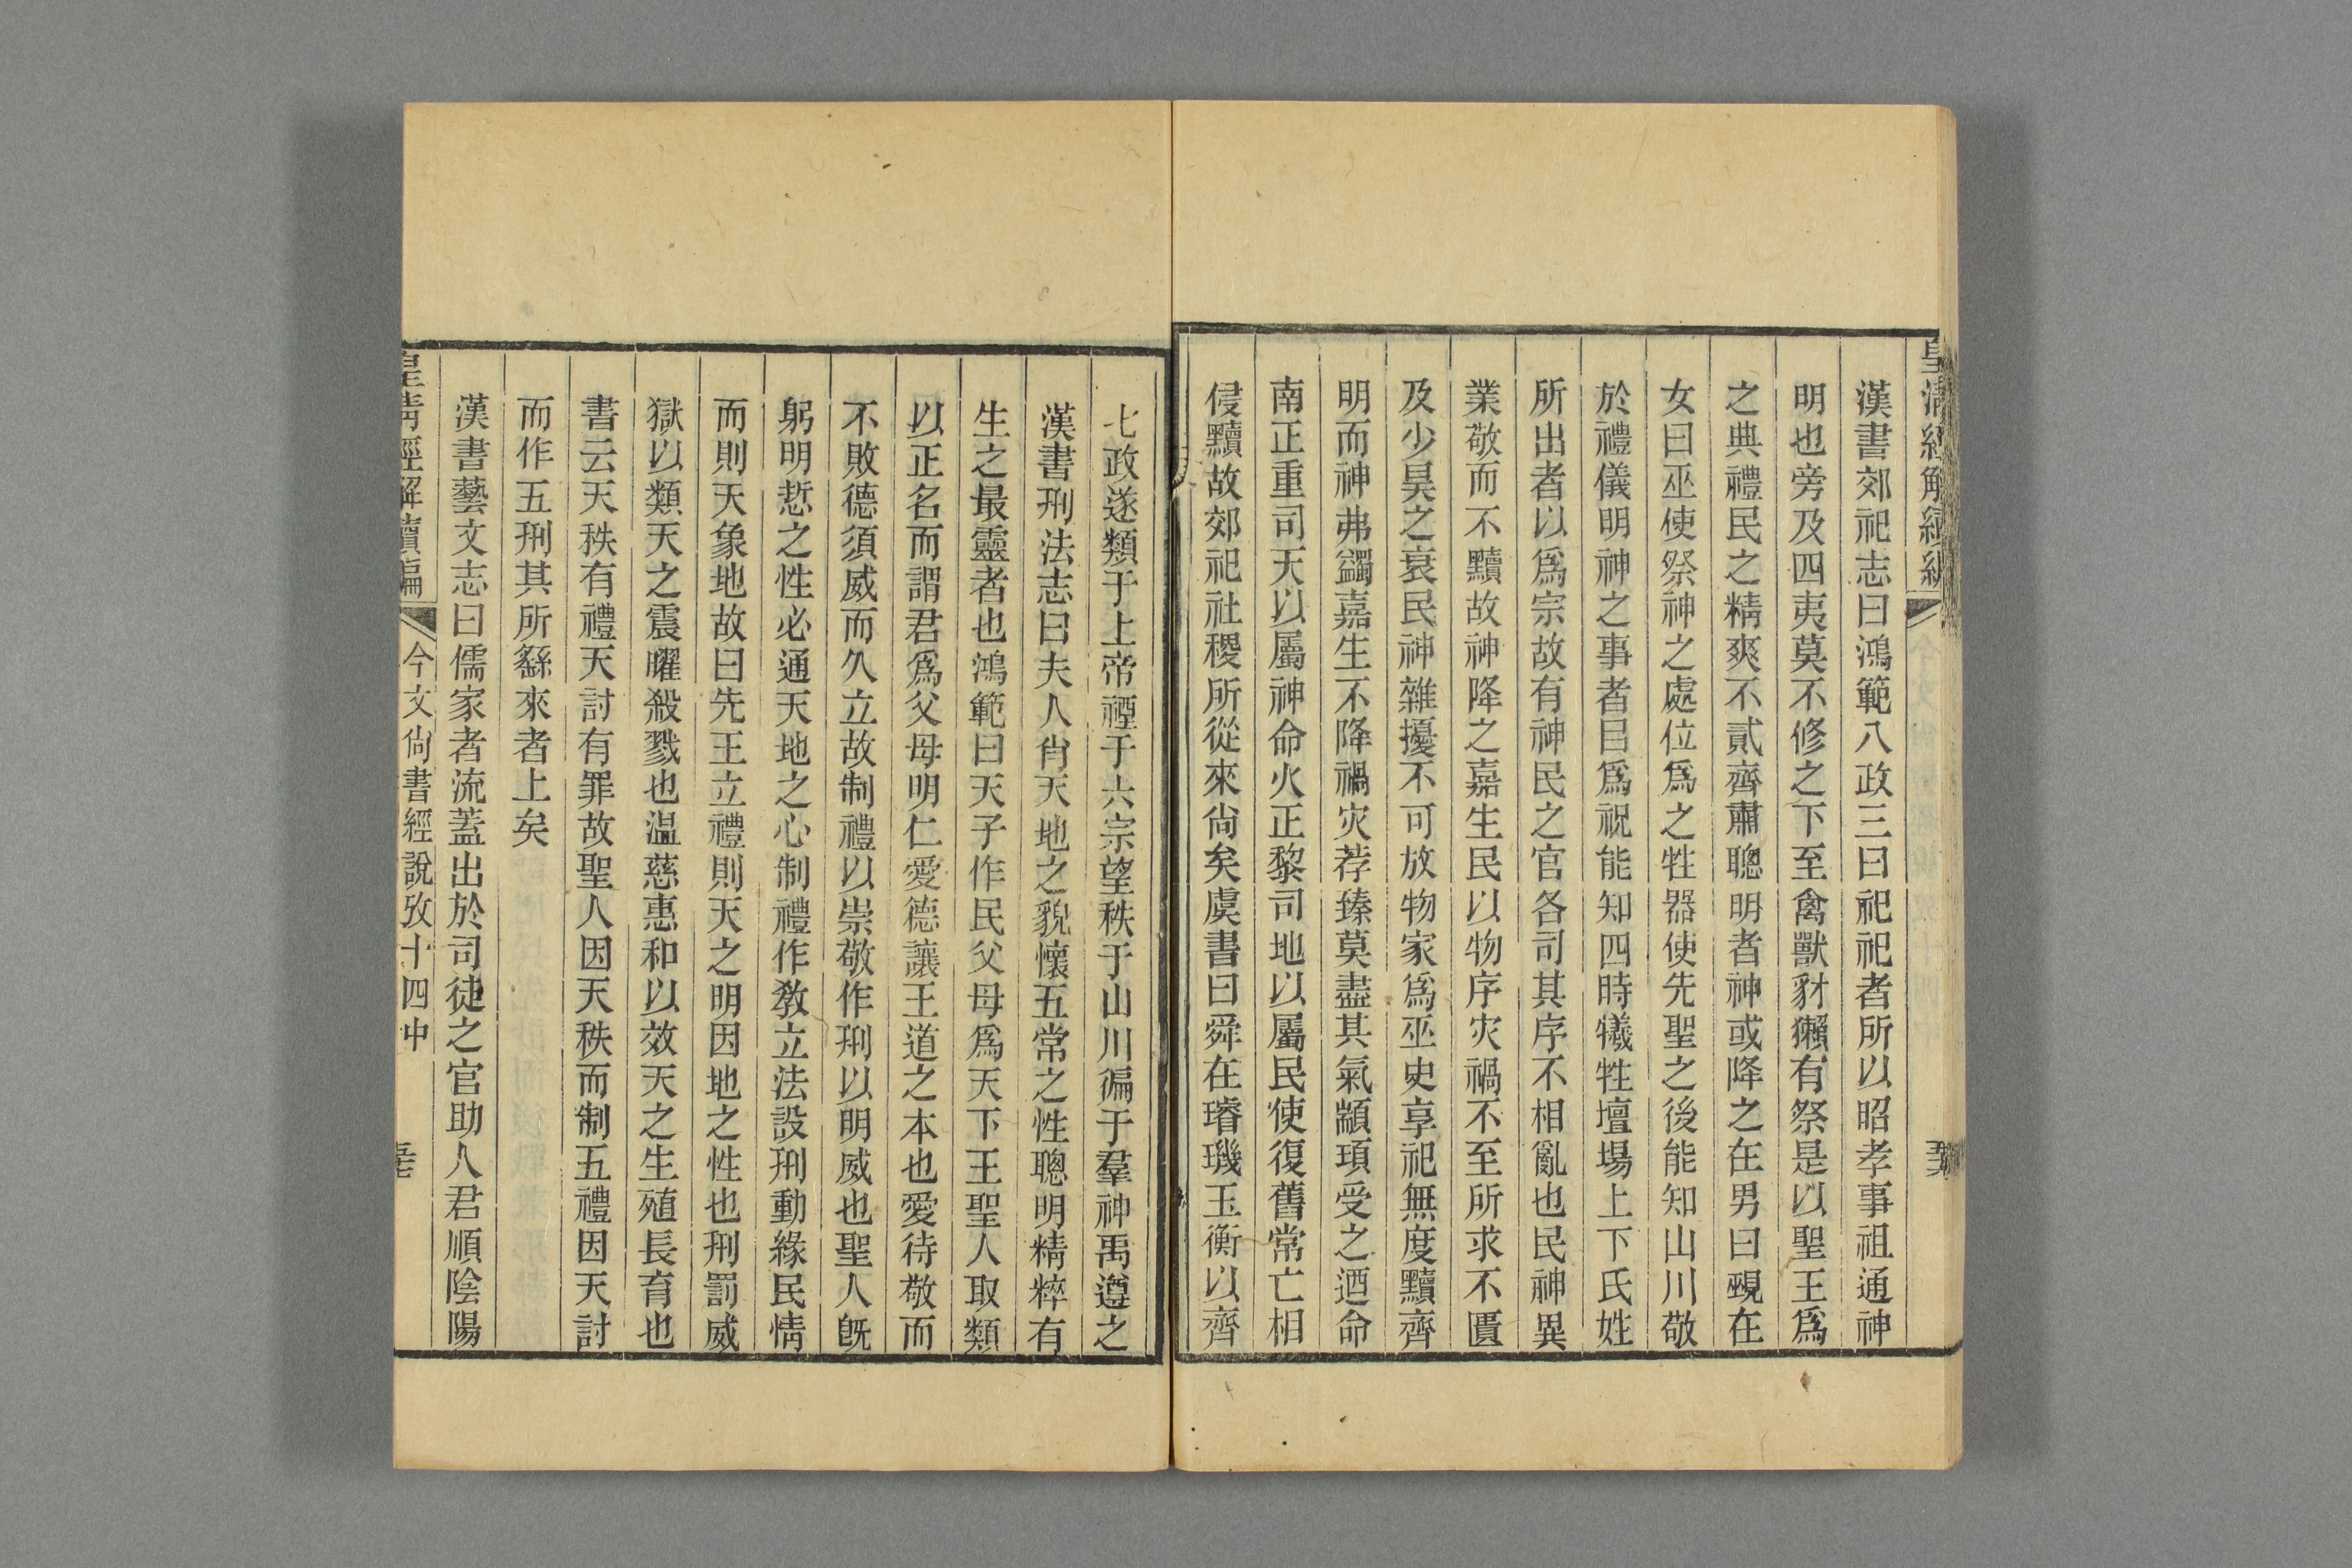 漢書郊祀志曰鴻範八政三曰祀祀者所以昭孝事祖通神
明也旁及四夷莫不修之下至禽獸豺獺有祭是以聖王爲
之典禮民之精爽不貳齊肅聰明者神或降之在男曰覡在
女曰巫使祭神之處位爲之牲器使先聖之後能知山川敬
於禮儀明神之事者㠯爲祝能知四時犧牲壇場上下氏姓
所出者以爲宗故有神民之官各司其序不相亂也民神異
業敬而不黷故神降之嘉生民以物序灾禍不至所求不匱
及少昊之衰民神雜擾不可放物家爲巫史享祀無度黷齊
明而神弗蠲嘉生不降禍灾荐臻莫盡其氣顓頊受之迺命
南正重司天以屬神命火正黎司地以屬民使復舊常亡相
侵黷故郊祀社稷所從來尙矣虞書曰舜在璿璣玉衡以齊
七政遂類于上帝禋于六宗望秩于山川徧于羣神禹遵之
漢書刑法志曰夫人肖天地之貌懷五常之性聰明精粹有
生之最靈者也鴻範曰天子作民父母爲天下王聖人取類
以正名而謂君爲父母明仁愛德讓王道之本也愛待敬而
不敗德須威而久立故制禮以崇敬作刑以明威也聖人旣
躬明悊之性必通天地之心制禮作教立法設刑動緣民情
而則天象地故曰先王立禮則天之明因地之性也刑罰威
獄以類天之震曜殺戮也温慈惠和以效天之生殖長育也
書云天秩有禮天討有罪故聖人因天秩而制五禮因天討
而作五刑其所繇來者上矣
漢書藝文志曰儒家者流蓋出於司徒之官助人君順陰陽
皇淸經解續編
今文尙書經說攷十四中